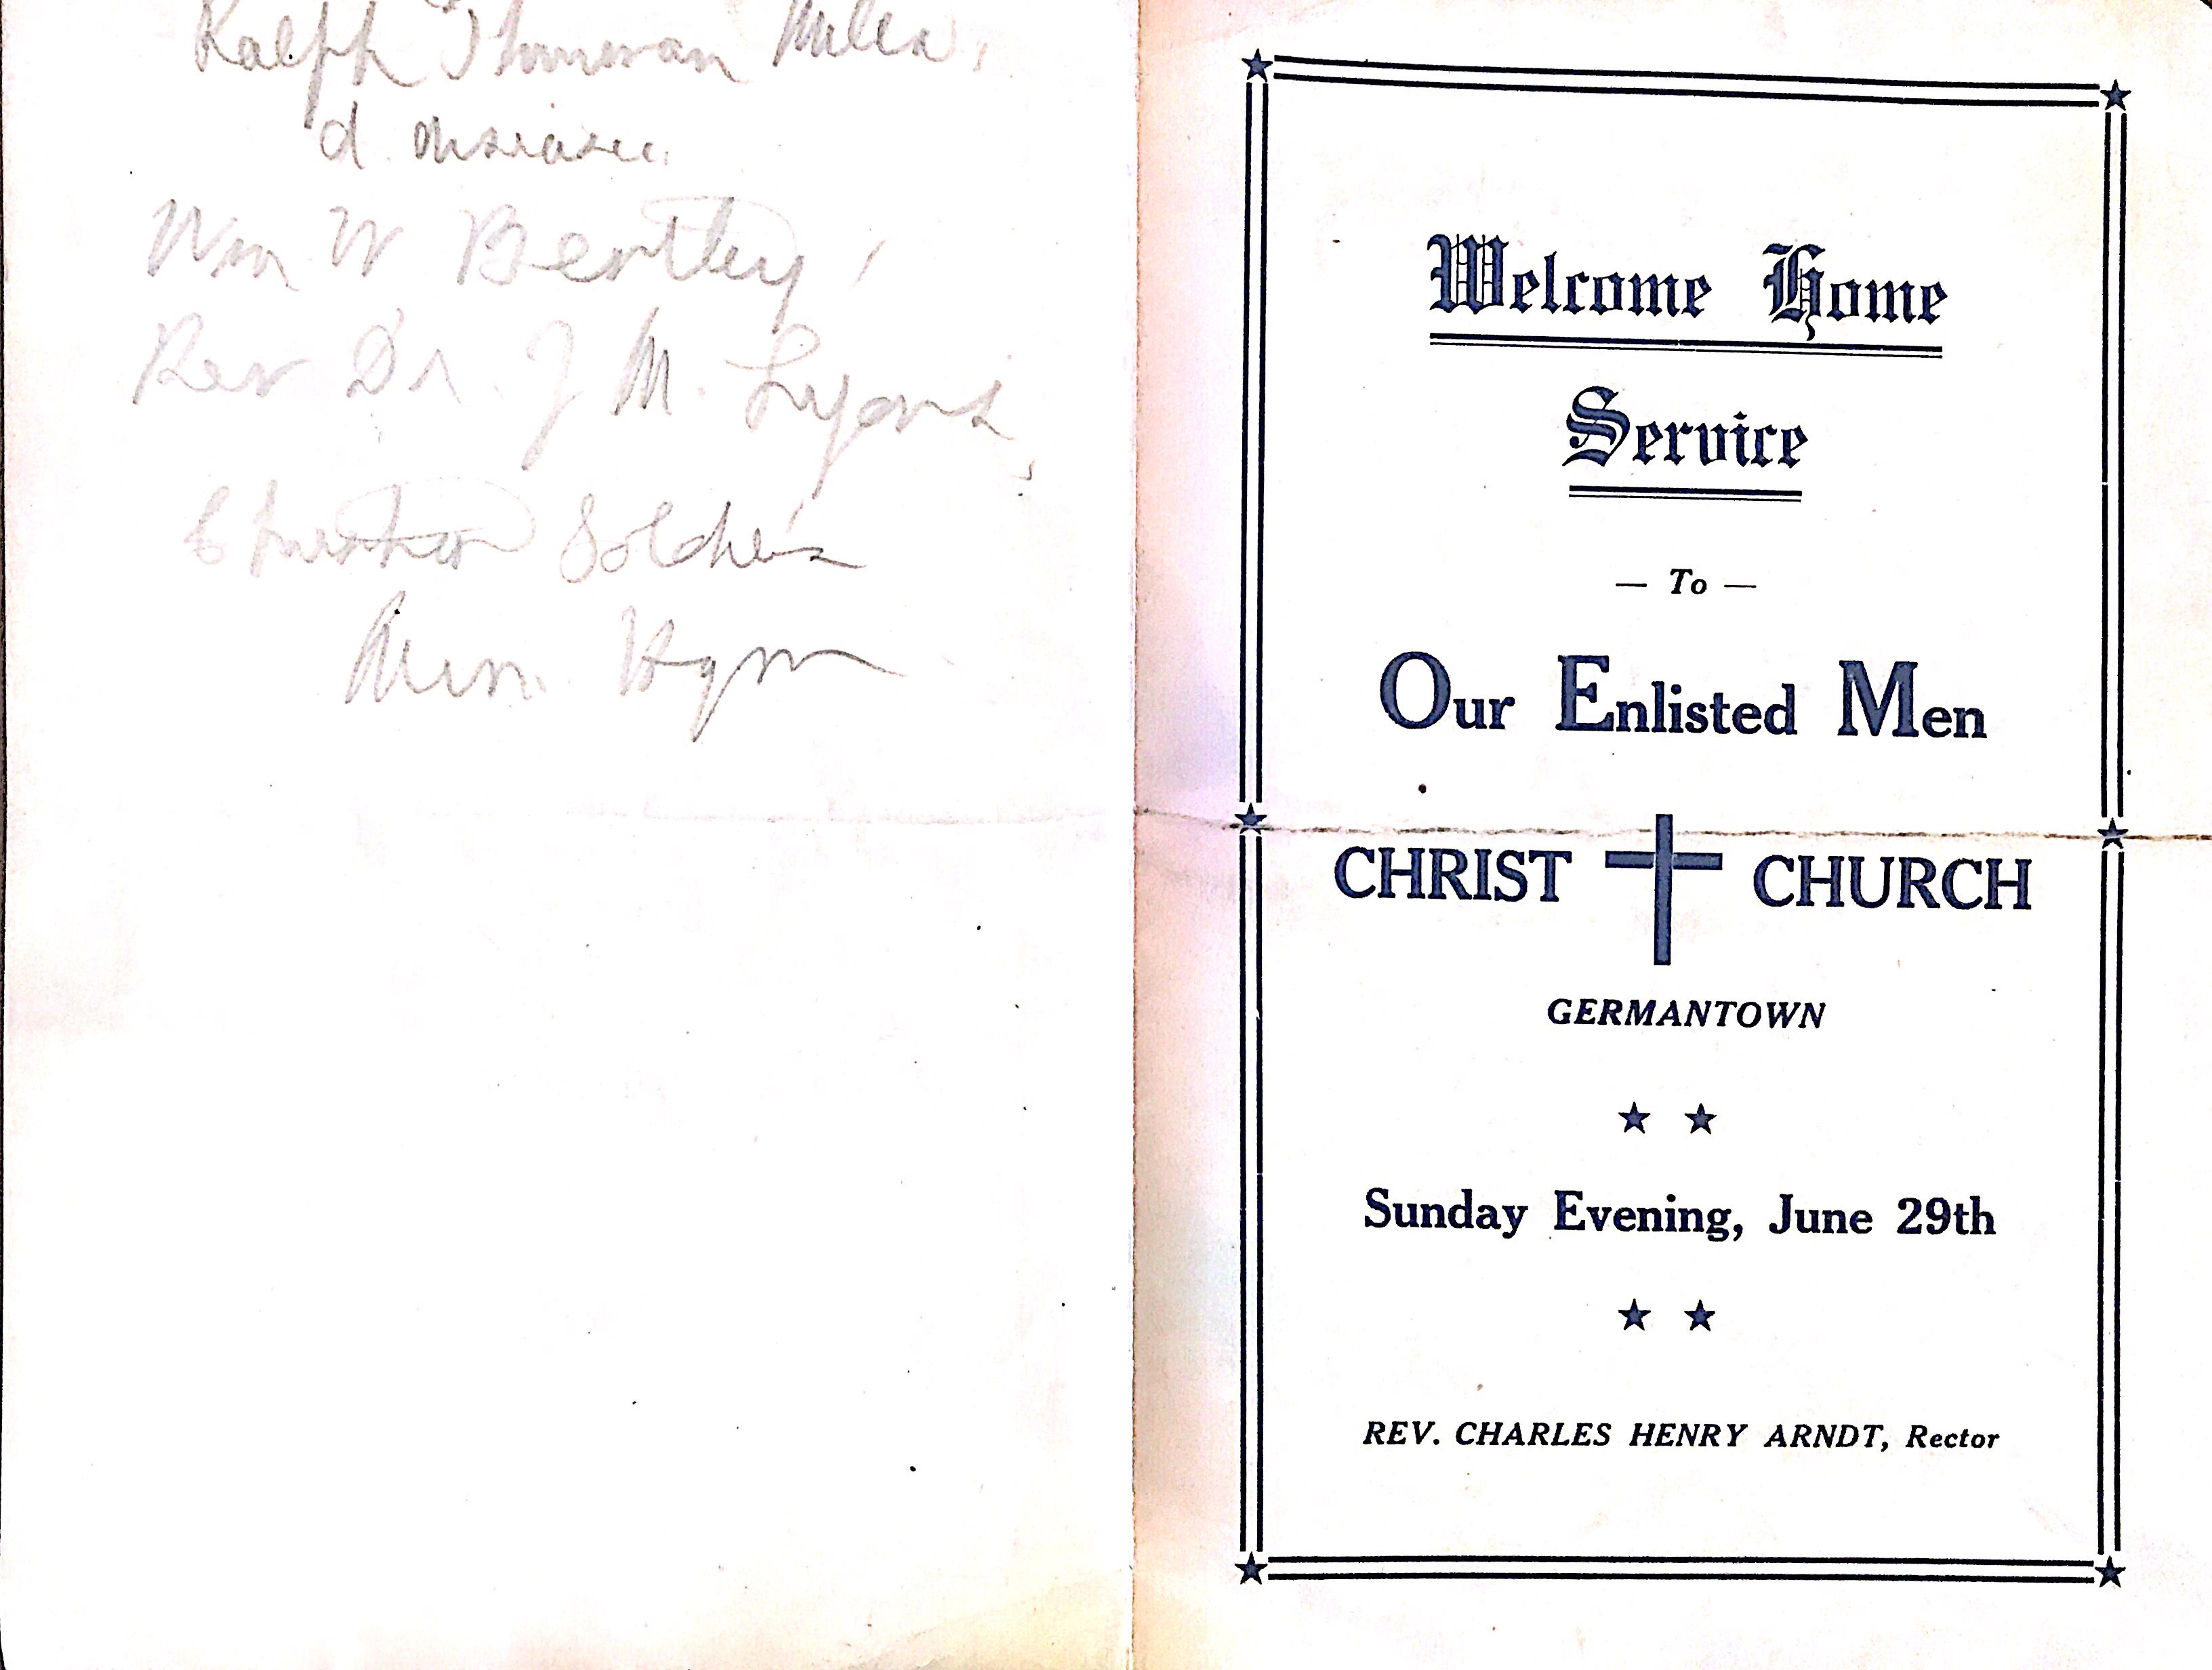 Ralph Thurman Mills,
d. disease.
Wm W Bentley,
Rev Dr. J M. Lyons,
Christian Soldiers
Hym
Welcome Home
Service
— To —
Our Enlisted Men
CHRIST CHURCH
GERMANTOWN
Sunday Evening, June 29th
REV. CHARLES HENRY ARNDT, Rector